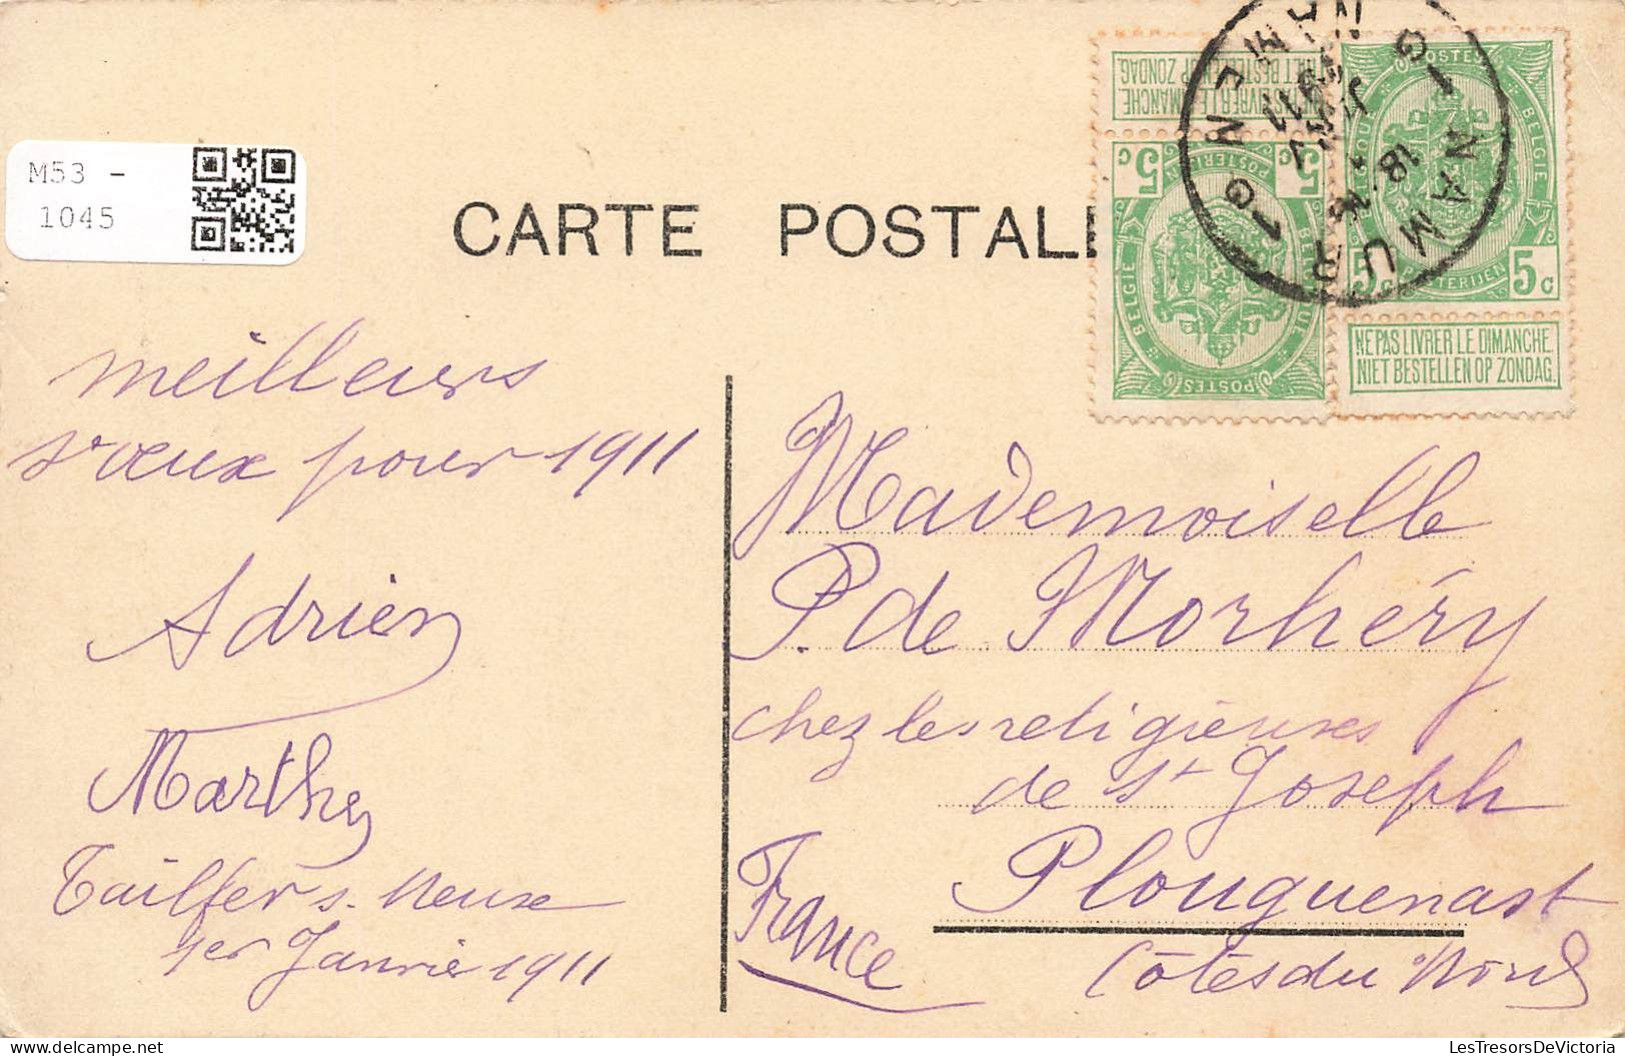 M53 -
1045
CARTE POSTALE
NIET BESTELLEN OP ZONDAG.
NE PAS LIVRER LE DIMANCHE
5c 5c
POSTERIJEN
BELGIE BELGIQUE
POSTES
POSTES
BELGIQUE BELGIE
5c POSTERIJEN 5c
NE PAS LIVRER LE DIMANCHE
NIET BESTELLEN OP ZONDAG.
G 1 NAMUR 1 G NAMEN
1911
meilleurs
vœux pour 1911
Adrien
Marthe
Tailfer s. Meuse
1er Janvié 1911
Mademoiselle
P. de Morhéry
chez les religieuses
de St Joseph
Plouguenast
France
Côtes du Nord
LesTresorsDeVictoria